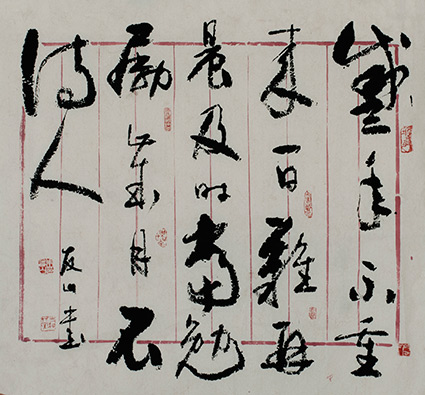 盛年不重
来一日難再
晨及时當勉
励歲月不
待人
山書